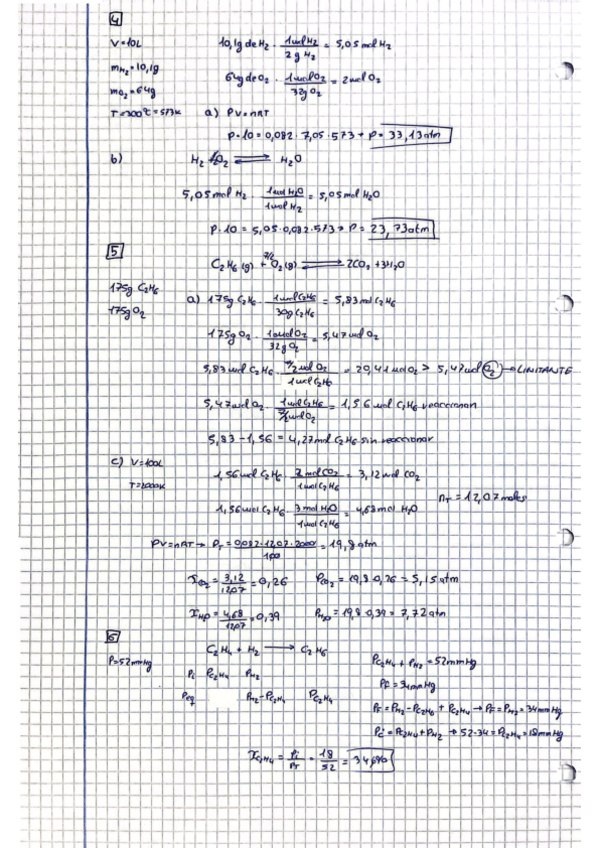 4
V=10L 10,1g de H2 · 1mol H2 / 2g H2 = 5,05 mol H2
mH2=10,1g
mO2=64g 64g de O2 · 1mol O2 / 32g O2 = 2 mol O2
T=300ºC=573K a) PV=nRT
P·10=0,082·7,05·573 → P=33,13atm
b) H2 + ½O2 ⇌ H2O
5,05 mol H2 · 1mol H2O / 1mol H2 = 5,05 mol H2O
P·10=5,05·0,082·573 → P=23,73atm
5
C2H6(g) + 7/2 O2(g) ⇌ 2CO2 + 3H2O
175g C2H6
175g O2
a) 175g C2H6 · 1mol C2H6 / 30g C2H6 = 5,83 mol C2H6
175g O2 · 1mol O2 / 32g O2 = 5,47 mol O2
5,83 mol C2H6 · 7/2 mol O2 / 1mol C2H6 = 20,41 mol O2 > 5,47 mol O2 → LIMITANTE
5,47 mol O2 · 1mol C2H6 / 7/2 mol O2 = 1,56 mol C2H6 reaccionan
5,83-1,56 = 4,27 mol C2H6 sin reaccionar
c) V=100L
T=2000K
1,56 mol C2H6 · 2 mol CO2 / 1mol C2H6 = 3,12 mol CO2
1,56 mol C2H6 · 3 mol H2O / 1mol C2H6 = 4,68 mol H2O
nT = 12,07 moles
PV=nRT → PT = 0,082·12,07·2000 / 100 = 19,8 atm
XCO2 = 3,12 / 12,07 = 0,26 PCO2 = 19,8·0,26 = 5,15 atm
XH2O = 4,68 / 12,07 = 0,39 PH2O = 19,8·0,39 = 7,72 atm
6
P=52mmHg
C2H4 + H2 → C2H6
Pi PC2H4 PH2
Peq PH2-PC2H4 PC2H4
PC2H4 + PH2 = 52mmHg
PF = 34mmHg
PF = PH2 - PC2H4 + PC2H4 → PF = PH2 = 34mmHg
Pi = PC2H4 + PH2 → 52-34 = PC2H4 = 18mmHg
XC2H4 = Pi / PT = 18 / 52 = 34,6%